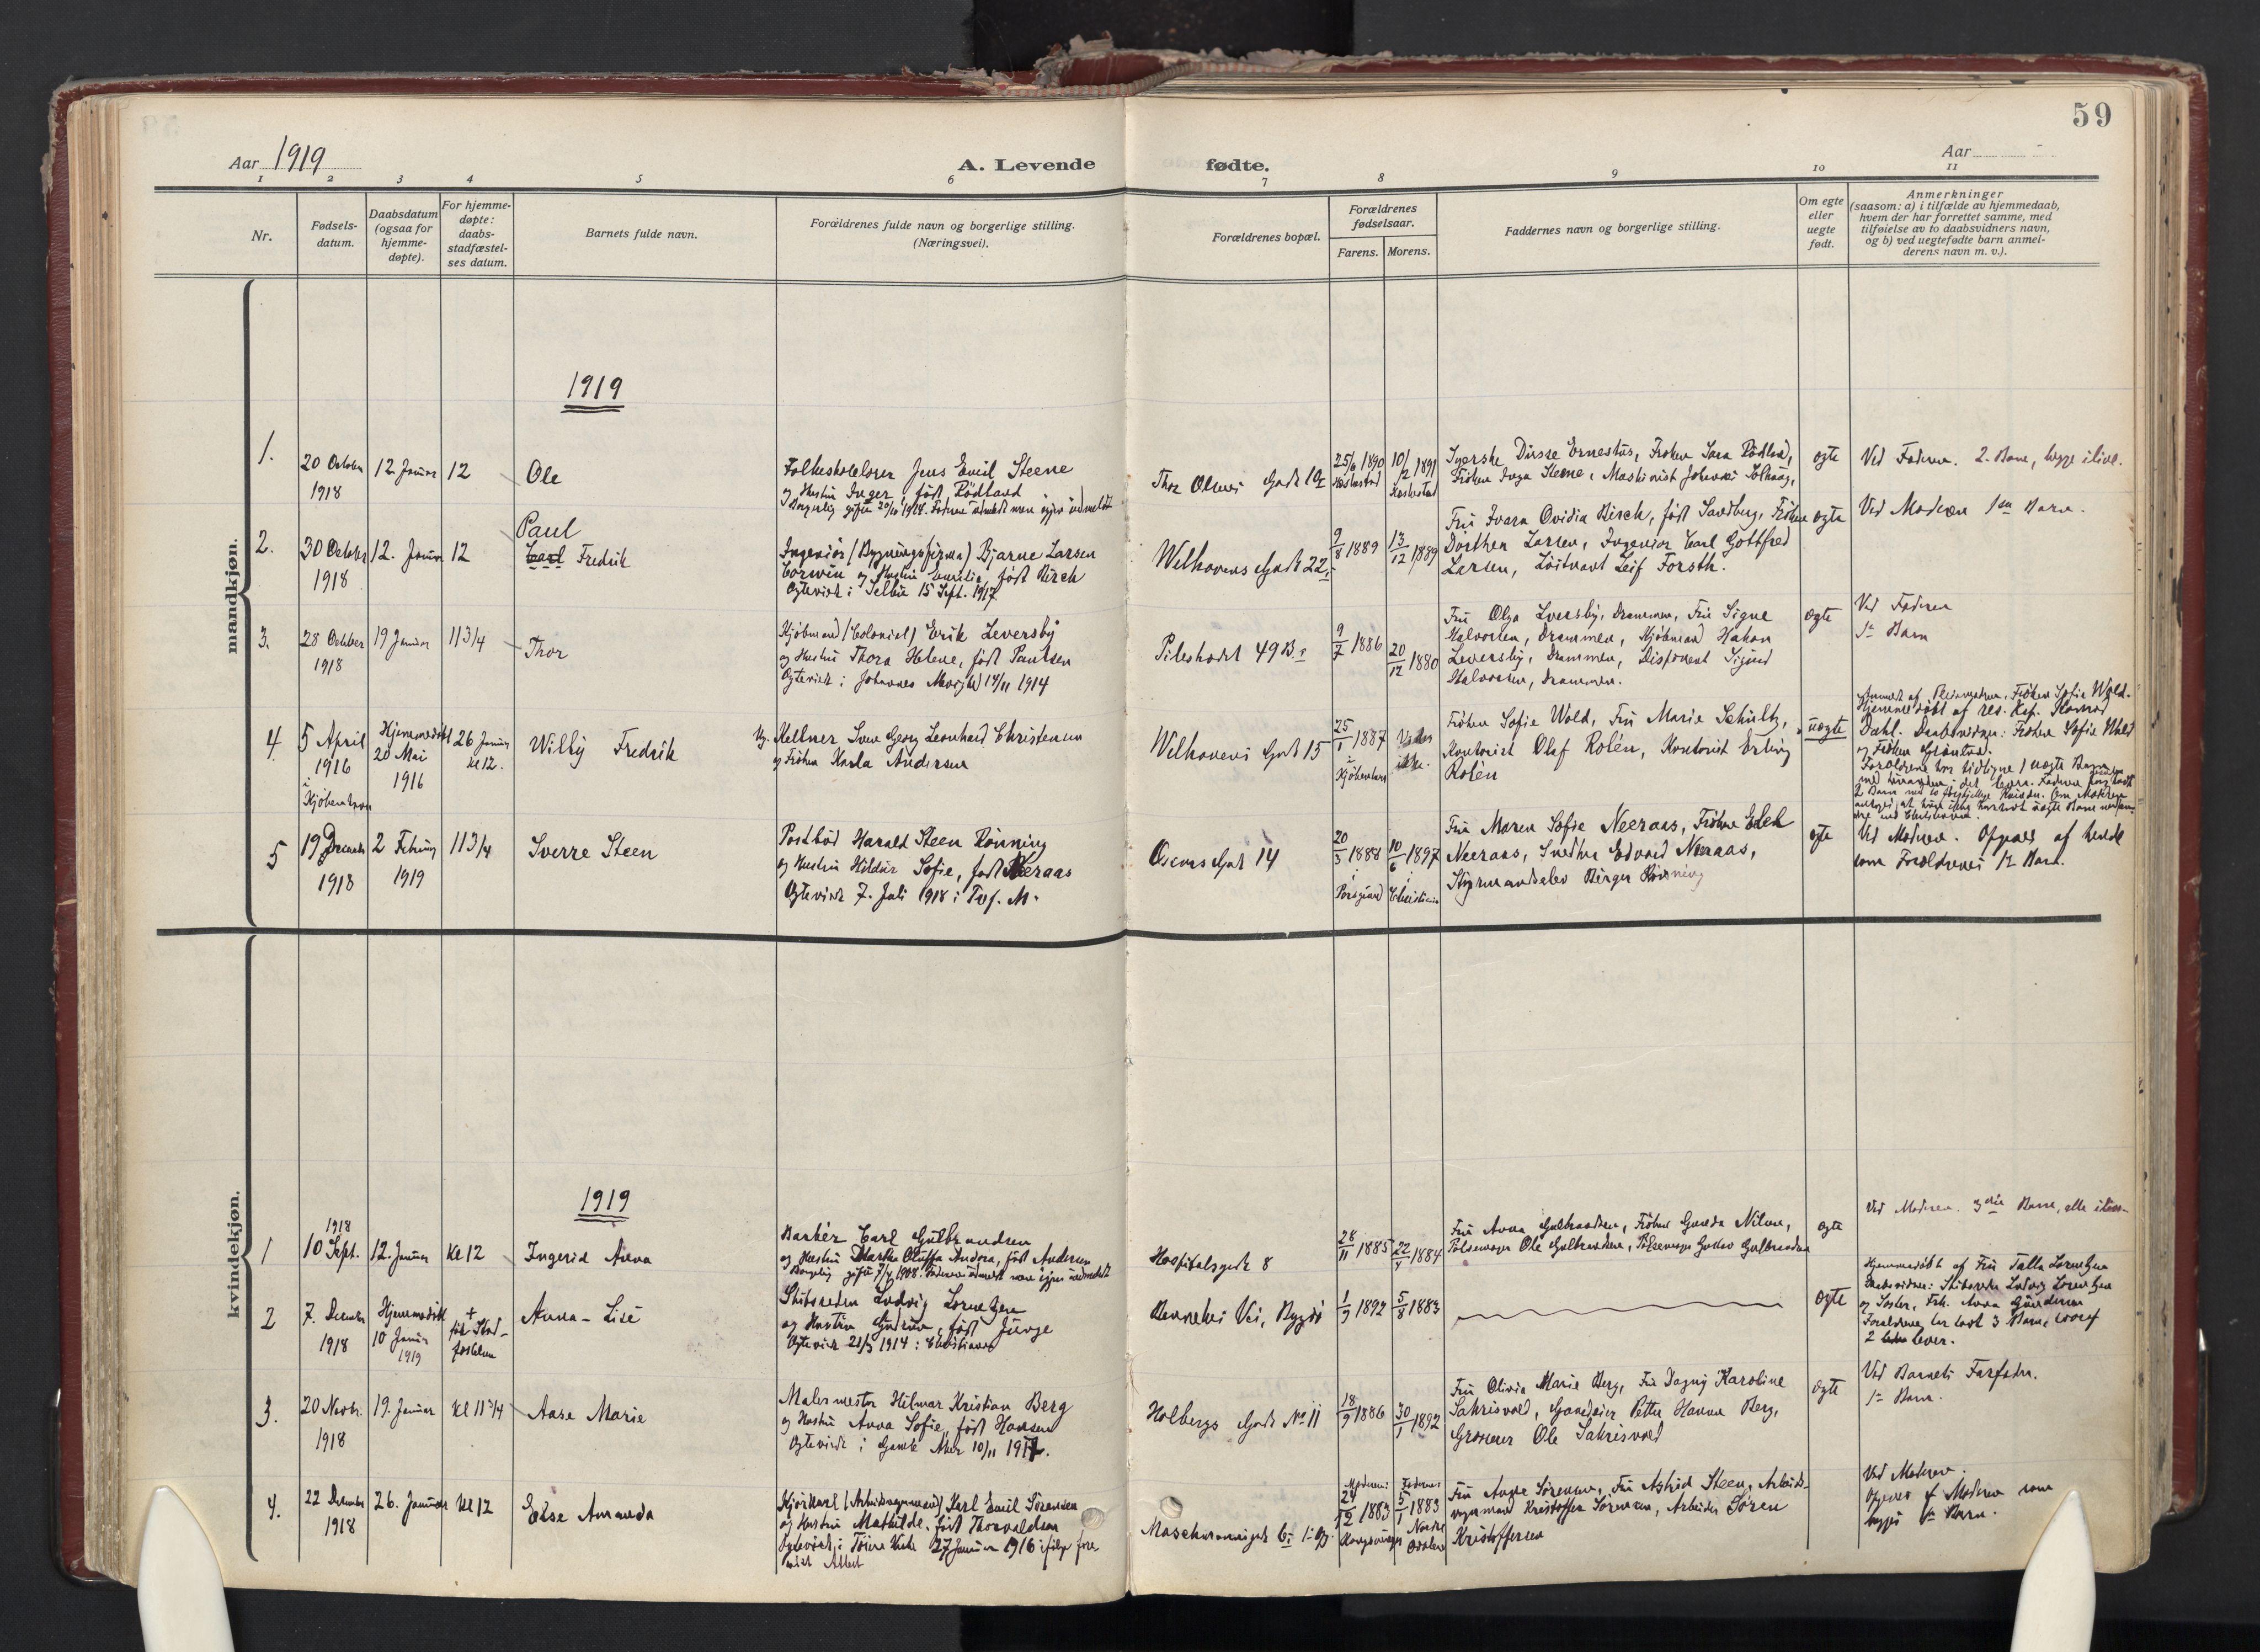 59
Aar 1919
A. Levende
fødte.
Aar
1
2
3
4
5
6
7
8
9
10
11
Nr.
Fødsels-
datum.
Daabsdatum
(ogsaa for
hjemme-
døpte).
For hjemme-
døpte:
daabs-
stadfæstel-
ses datum.
Barnets fulde navn.
Forældrenes fulde navn og borgerlige stilling.
(Næringsvei).
Forældrenes bopæl.
Forældrenes
fødselsaar.
Farens.
Morens.
Faddernes navn og borgerlige stilling.
Om egte
eller
uegte
født.
Anmerkninger
(saasom: a) i tilfælde av hjemmedaab,
hvem der har forrettet samme, med
tilføielse av to daabsvidners navn,
og b) ved uegtefødte barn anmel-
derens navn m. v.).
mandkjøn.
1919
1.
20 October
1918
12. Januar
12
Ole
Jens Emil Steene
og Hustru Inger, født Rödland
Thor Olsens Gade
25/6 1890
10/12 1891
egte
Ved Faderen. 2. Barn, begge ilive.
2.
30 October
1918
12. Januar
12
Paul
Carl Fredrik
Ingeniör (Bygningsfirma) Bjarne Larsen
Corwin og Hustru født Birch
Egteviet i Selbu 15 Sept. 1917
Welhavens Gade 22
9/8 1889
13/12 1889
Fru Ovidia Birch, født Sandberg, Fröken
Dorthea Larsen, Ingeniör Carl Gottfred
Larsen, Löitnant Leif Forsth.
egte
Ved Moderen 1ste Barn.
3.
28 October
1918
19 Januar
11 3/4
Thor
Kjöbmand (Colonial) Erik Leversby
og Hustru Thora Helene, født Paulsen
Egteviet i Johannes 14/11 1914
Pilestrædet 49 B
9/7 1886
20/12 1880
Fru Olga Leversby, Drammen, Fru Signe
Halvorsen, Drammen, Kjöbmand Hakon
Leversby, Drammen, Disponent Sigurd
Halvorsen, Drammen.
egte
Ved Faderen
1ste Barn
4.
5 April
1916
i
Kjöbenhavn
Hjemmedöbt
20 Mai
1916
26 Januar
kl 12.
Wilby Fredrik
Ug. Kellner Sven Georg Leonhard Christensen
og Fröken Karla Andersen
Welhavens Gade 15
25/1 1887
i
Kjöbenhavn
Vides
ikke.
Fröken Sofie Wold, Fru Marie Schultz,
Kontorist Olaf Rolén, Kontorist Erling
Rolén
uegte
Fröken Sofie Wold.
Hjemmedöbt af res. Kap. Konrad
Dahl. Daabsvidner: Fröken Sofie Wold
og Fröken
5
19 December
1918
2 Februar
1919
11 3/4
Sverre Steen
Postbud Harald Steen Rönning
og Hustru Hildur Sofie, født Neeraas
Egteviet 7. Juli 1918 i Tvf. M.
Oscars Gade 14
20/3 1888
i
Porsgrund
10/6 1897
i
Christiania
Fru Maren Sofie Neeraas, Fröken Edel
Neeraas, Snedker Edvard Neeraas,
Styrmandselev Birger Rönning
egte
Ved Moderen. Opgives af hende
som Forældrenes 1ste Barn.
kvindekjøn.
1919
1
1918
10 Sept.
12. Januar
Kl 12
Ingerid Anna
Barber Carl Gulbrandsen
og Hustru Marthe Oluffa Andrea, født Andersen
Hospitalsgade 8
28/11 1885
22/ 1884
Fru Anna Gulbrandsen, Fröken Gunda Nilsen,
Pölsemager Ole Gulbrandsen, Pölsemager Gustav Gulbrandsen
egte
Ved Moderen. 3die Barn, alle ilive.
2
7. December
1918
Hjemmedöbt
10 Januar
1919
+
för Stad-
fæstelsen
Anna-Lise
Skibsreder Ludvig Lorentzen
og Hustru Gudrun, født Junge
Egteviet 21/3 1914 i Christiania
Bennekes Vei, Bygdö
1/9 1892
5/8 1883
egte
Hjemmedöbt af Fru Talla Lorentzen
Daabsvidner: Skibsreder Ludvig Lorentzen
og Söster, Frk. Anna
Forældrene har havt 3 Barn, hvoraf
2 lever.
3.
20 Novbr.
1918
19. Januar
Kl 11 3/4
Aase Marie
Malermester Hilmar Kristian Berg
og Hustru Anna Sofie, født Hansen
Egteviet i Gamle Aker 10/11 1917.
Holbergs Gade No 11
18/9 1886
30/1 1892
Fru Olivia Marie Berg, Fru Dagny Karoline
Sakrisvold, Gaardeier Petter Hansen Berg,
Grosserer Ole Sakrisvold
egte
Ved Barnets Farfader.
1ste Barn.
4.
22 December
1918
26. Januar
Kl 12
Else Amanda
Kjörekarl (Arbeidsvognmand) Karl Emil Sörensen
og Hustru Mathilde, født Thorvaldsen
Egteviet i Töien Kirke 27 Januar 1916 ifölge fore-
vist Attest
Moderens
24/12 1883
Kongsvinger
Faderens
5/1 1883
Nordre
Odalen
Fru Anne Sörensen, Fru Astrid Steen, Arbeids-
vognmand Kristoffer Sörensen, Arbeider Sören
Kristoffersen
Ved Moderen.
Opgives af Moderen som
begges 1ste Barn.